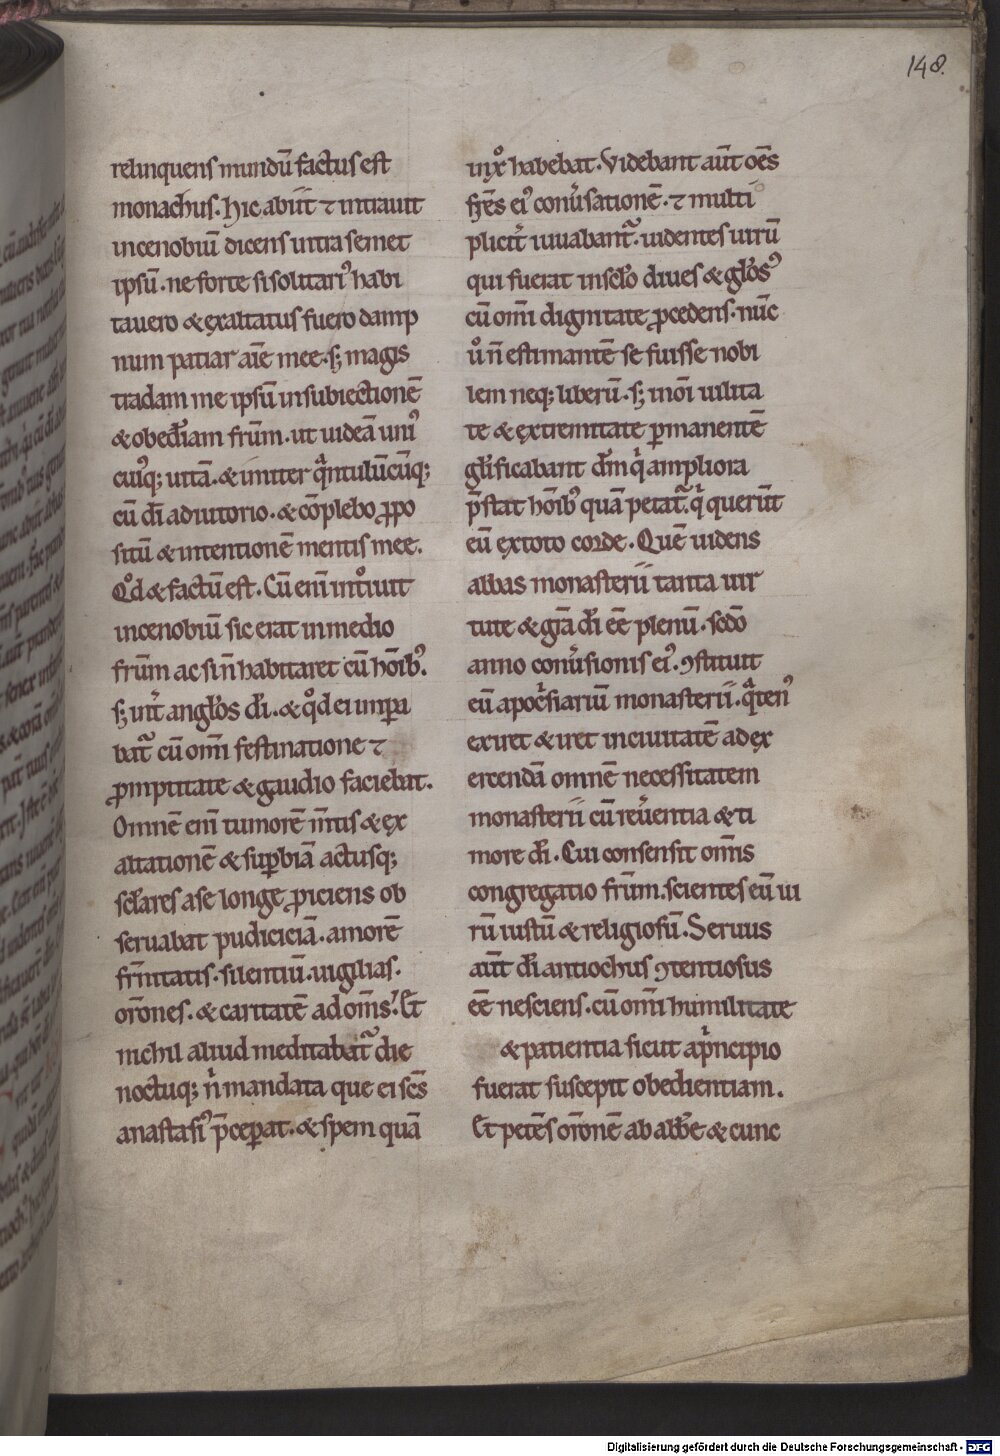 148.
relinquens mundū factus est
monachus. Hic abiit ⁊ intrauit
incenobiū dicens intra semet
ipsū. ne forte si solitariꝰ habi
tauero & exaltatus fuero damp
num patiar aīe mee. sꝫ magis
tradam me ipsū insubiectionē
& obediam frūm. ut uideā uniꝰ
cuiꝰqꝫ uitā. & imiter qͣntulūcūqꝫ
cū dī adiutorio. & cōplebo ꝓpo
sitū & intentionē mentis mee.
Qͦd & factū est. Cū enī intͦiuit
incenobiū sic erat in medio
frūm ac si n̄ habitaret cū hōibꝰ.
sꝫ int͛ anglōs dī. & qͦd ei impa
batͣ cū om̄i festinatione ⁊
ꝓmptitate & gaudio faciebat.
Omnē enī tumorē m̄tis & ex
altationē & suꝑbiā actusqꝫ
sclāres a se longe ꝓiciens ob
seruabat pudiciciā. amorē
fr̄nitatis. silentiū. uigilias.
ōrones. & caritatē ad om̄s. Et
nichil aliud meditabatͣ die
noctuqꝫ n̄ mandata que ei sc̄s
anastasiꝰ p̄ceꝑat. & spem quā
inxͦ habebat. Videbant aūt oēs
fr̄es eiꝰ conu͛sationē. ⁊ multi
plicit͛ iuuabantͣ. uidentes uirū
qui fuerat insclō diues & glōsꝰ
cū om̄i dignitate ꝓcedens. nūc
uͦ n̄ estimantē se fuisse nobi
lem neqꝫ liberū. sꝫ inoī uilita
te & extremitate ꝑmanentē
glīficabant dm̄ qͥ ampliora
p̄stat hōibꝰ quā petatͣ. qͥ querūt
eū extoto corde. Quē uidens
abbas monasterii tanta uir
tute & grā dī eē plenū. scdō
anno conu͛sionis eiꝰ. ꝯstituit
eū apoc͛siariū monasterii. qͣtenꝰ
exiret & iret inciuitatē ad ex
ercendā omnē necessitatem
monasterii cū reu͛entia & ti
more dī. Cui consensit om̄is
congregatio frūm. scientes eū ui
rū iustū & religiosū. Seruus
aūt dī antiochus ꝯtentiosus
eē nesciens. cū om̄i humilitate
& patientia sicut apͥncipio
fuerat suscepit obedientiam.
Et petēs ōronē ab abb̄e & cunc
Digitalisierung gefördert durch die Deutsche Forschungsgemeinschaft - DFG